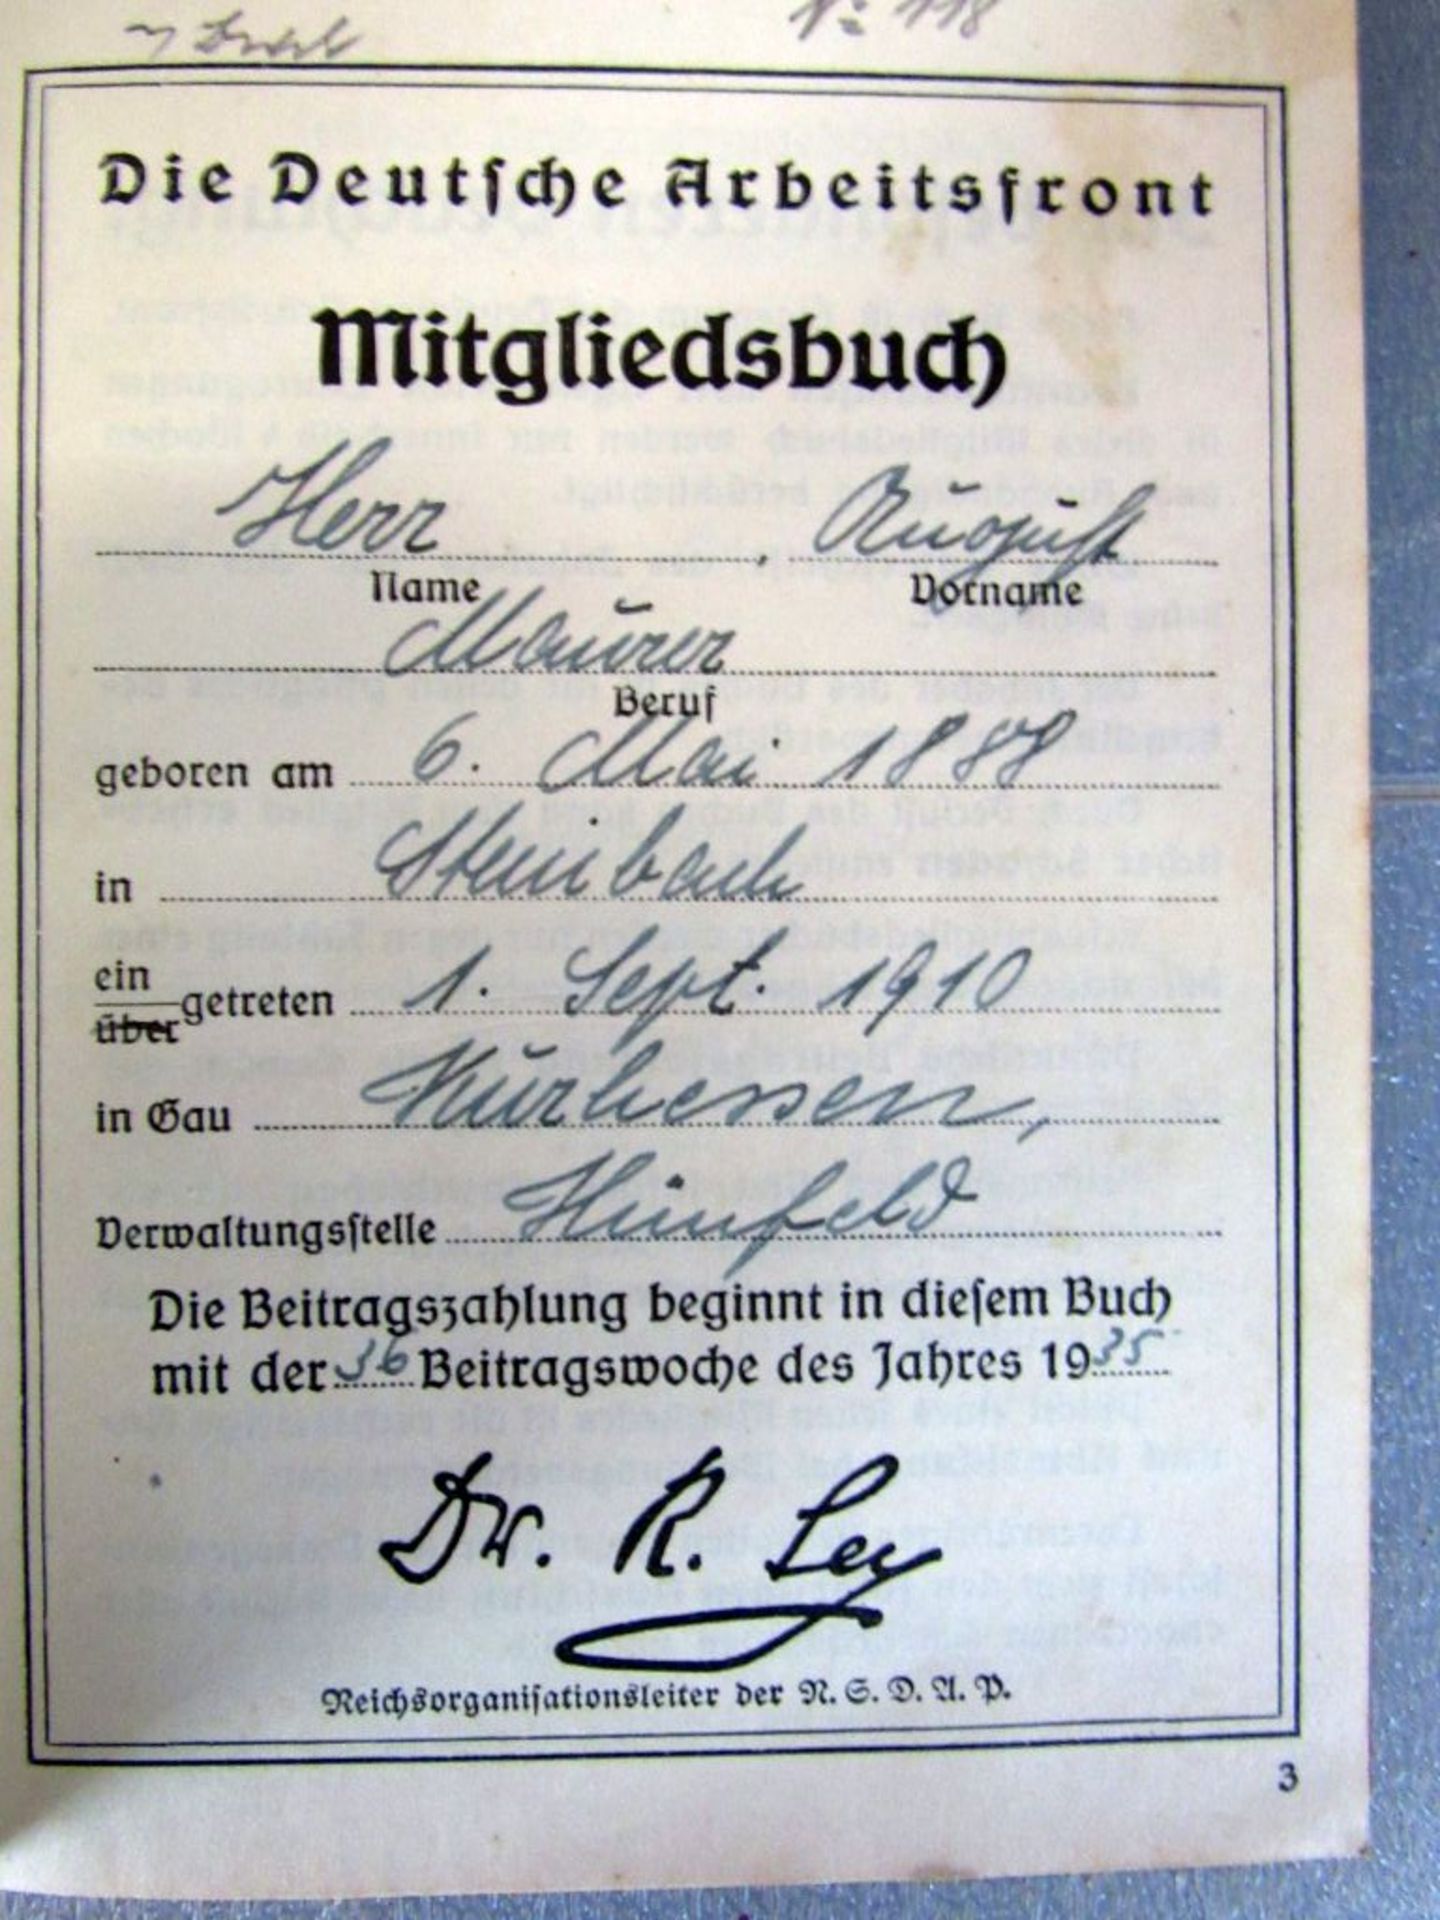 No 118
Die Deutsche Arbeitsfront
Mitgliedsbuch
Herr, August
Name Vorname
Maurer
Beruf
geboren am 6. Mai 1888
in Steinbach
ein
über getreten 1. Sept. 1910
in Gau Kurhessen,
Verwaltungsstelle Hünfeld
Die Beitragszahlung beginnt in diesem Buch
mit der 36 Beitragswoche des Jahres 1935
Dr. R. Ley
Reichsorganisationsleiter der N. S. D. A. P.
3